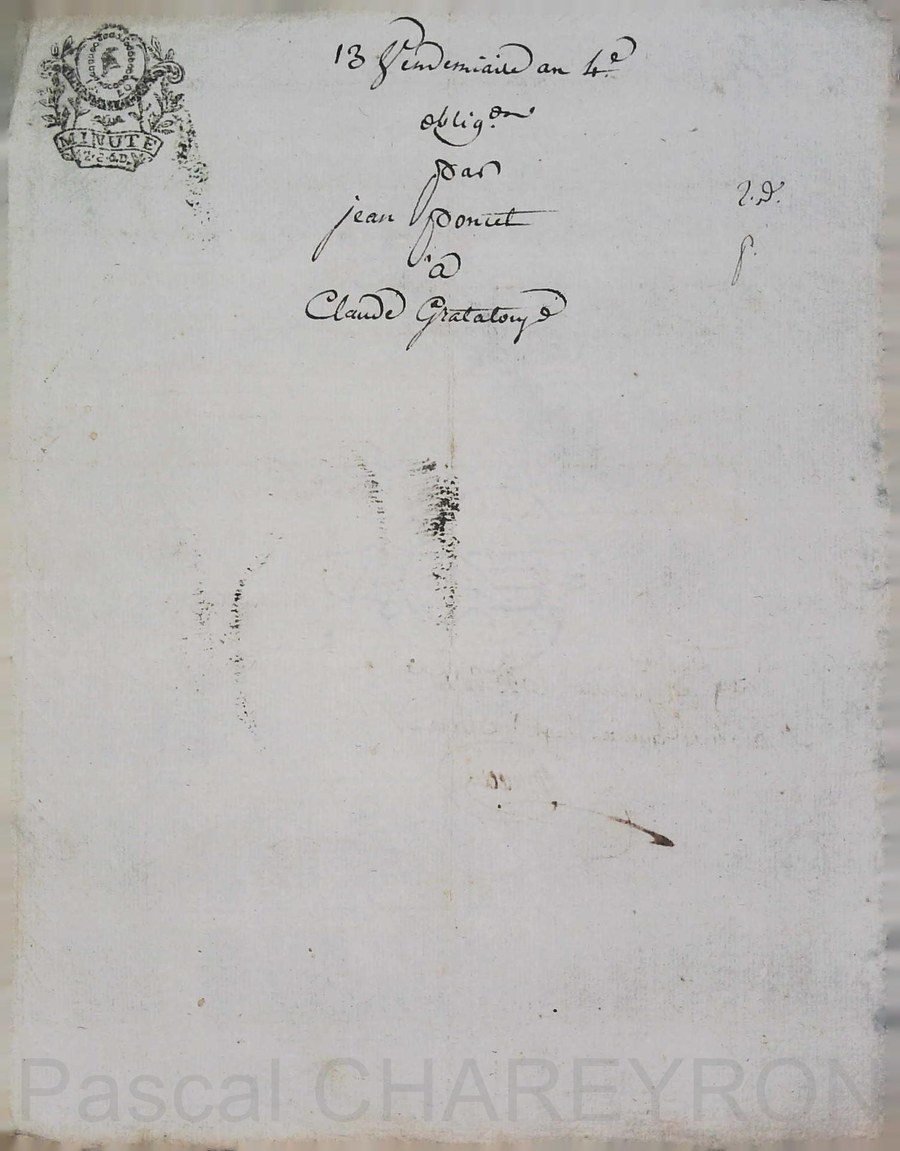 MINUTE
13 Vendemiaire an 4e
obligon
par
jean poncet
a
Claude Gratatouge
Pascal CHAREYRON